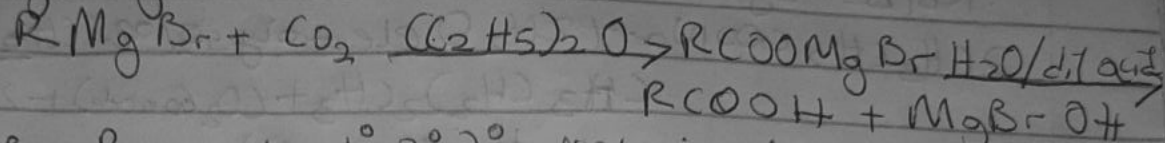 RMgBr + CO2 (C2H5)2O → RCOOMgBr H2O/dil acid →
RCOOH + MgBrOH